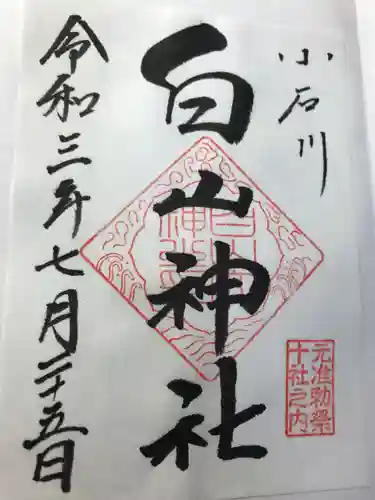 小石川
白山神社
元准勅祭
十社之内
白山
神社
令和三年七月二十五日